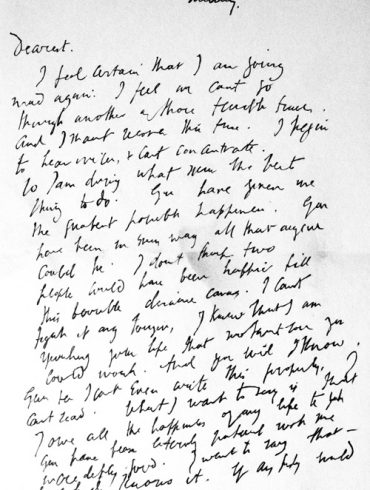 Dearest.
I feel certain that I am going
mad again: I feel we cant go
through another of those terrible times.
And I shant recover this time. I begin
to hear voices, & cant concentrate.
So I am doing what seems the best
thing to do. You have given me
the greatest possible happiness. You
have been in every way all that anyone
could be. I dont think two
people could have been happier till
this terrible disease came. I cant
fight it any longer, I know that I am
spoiling your life, that without me you
could work. And you will I know.
You see I cant even write this properly. I
cant read. What I want to say is that
I owe all the happiness of my life to you.
You have been entirely patient with me
&
good. I want to say that —
knows it. If anybody could